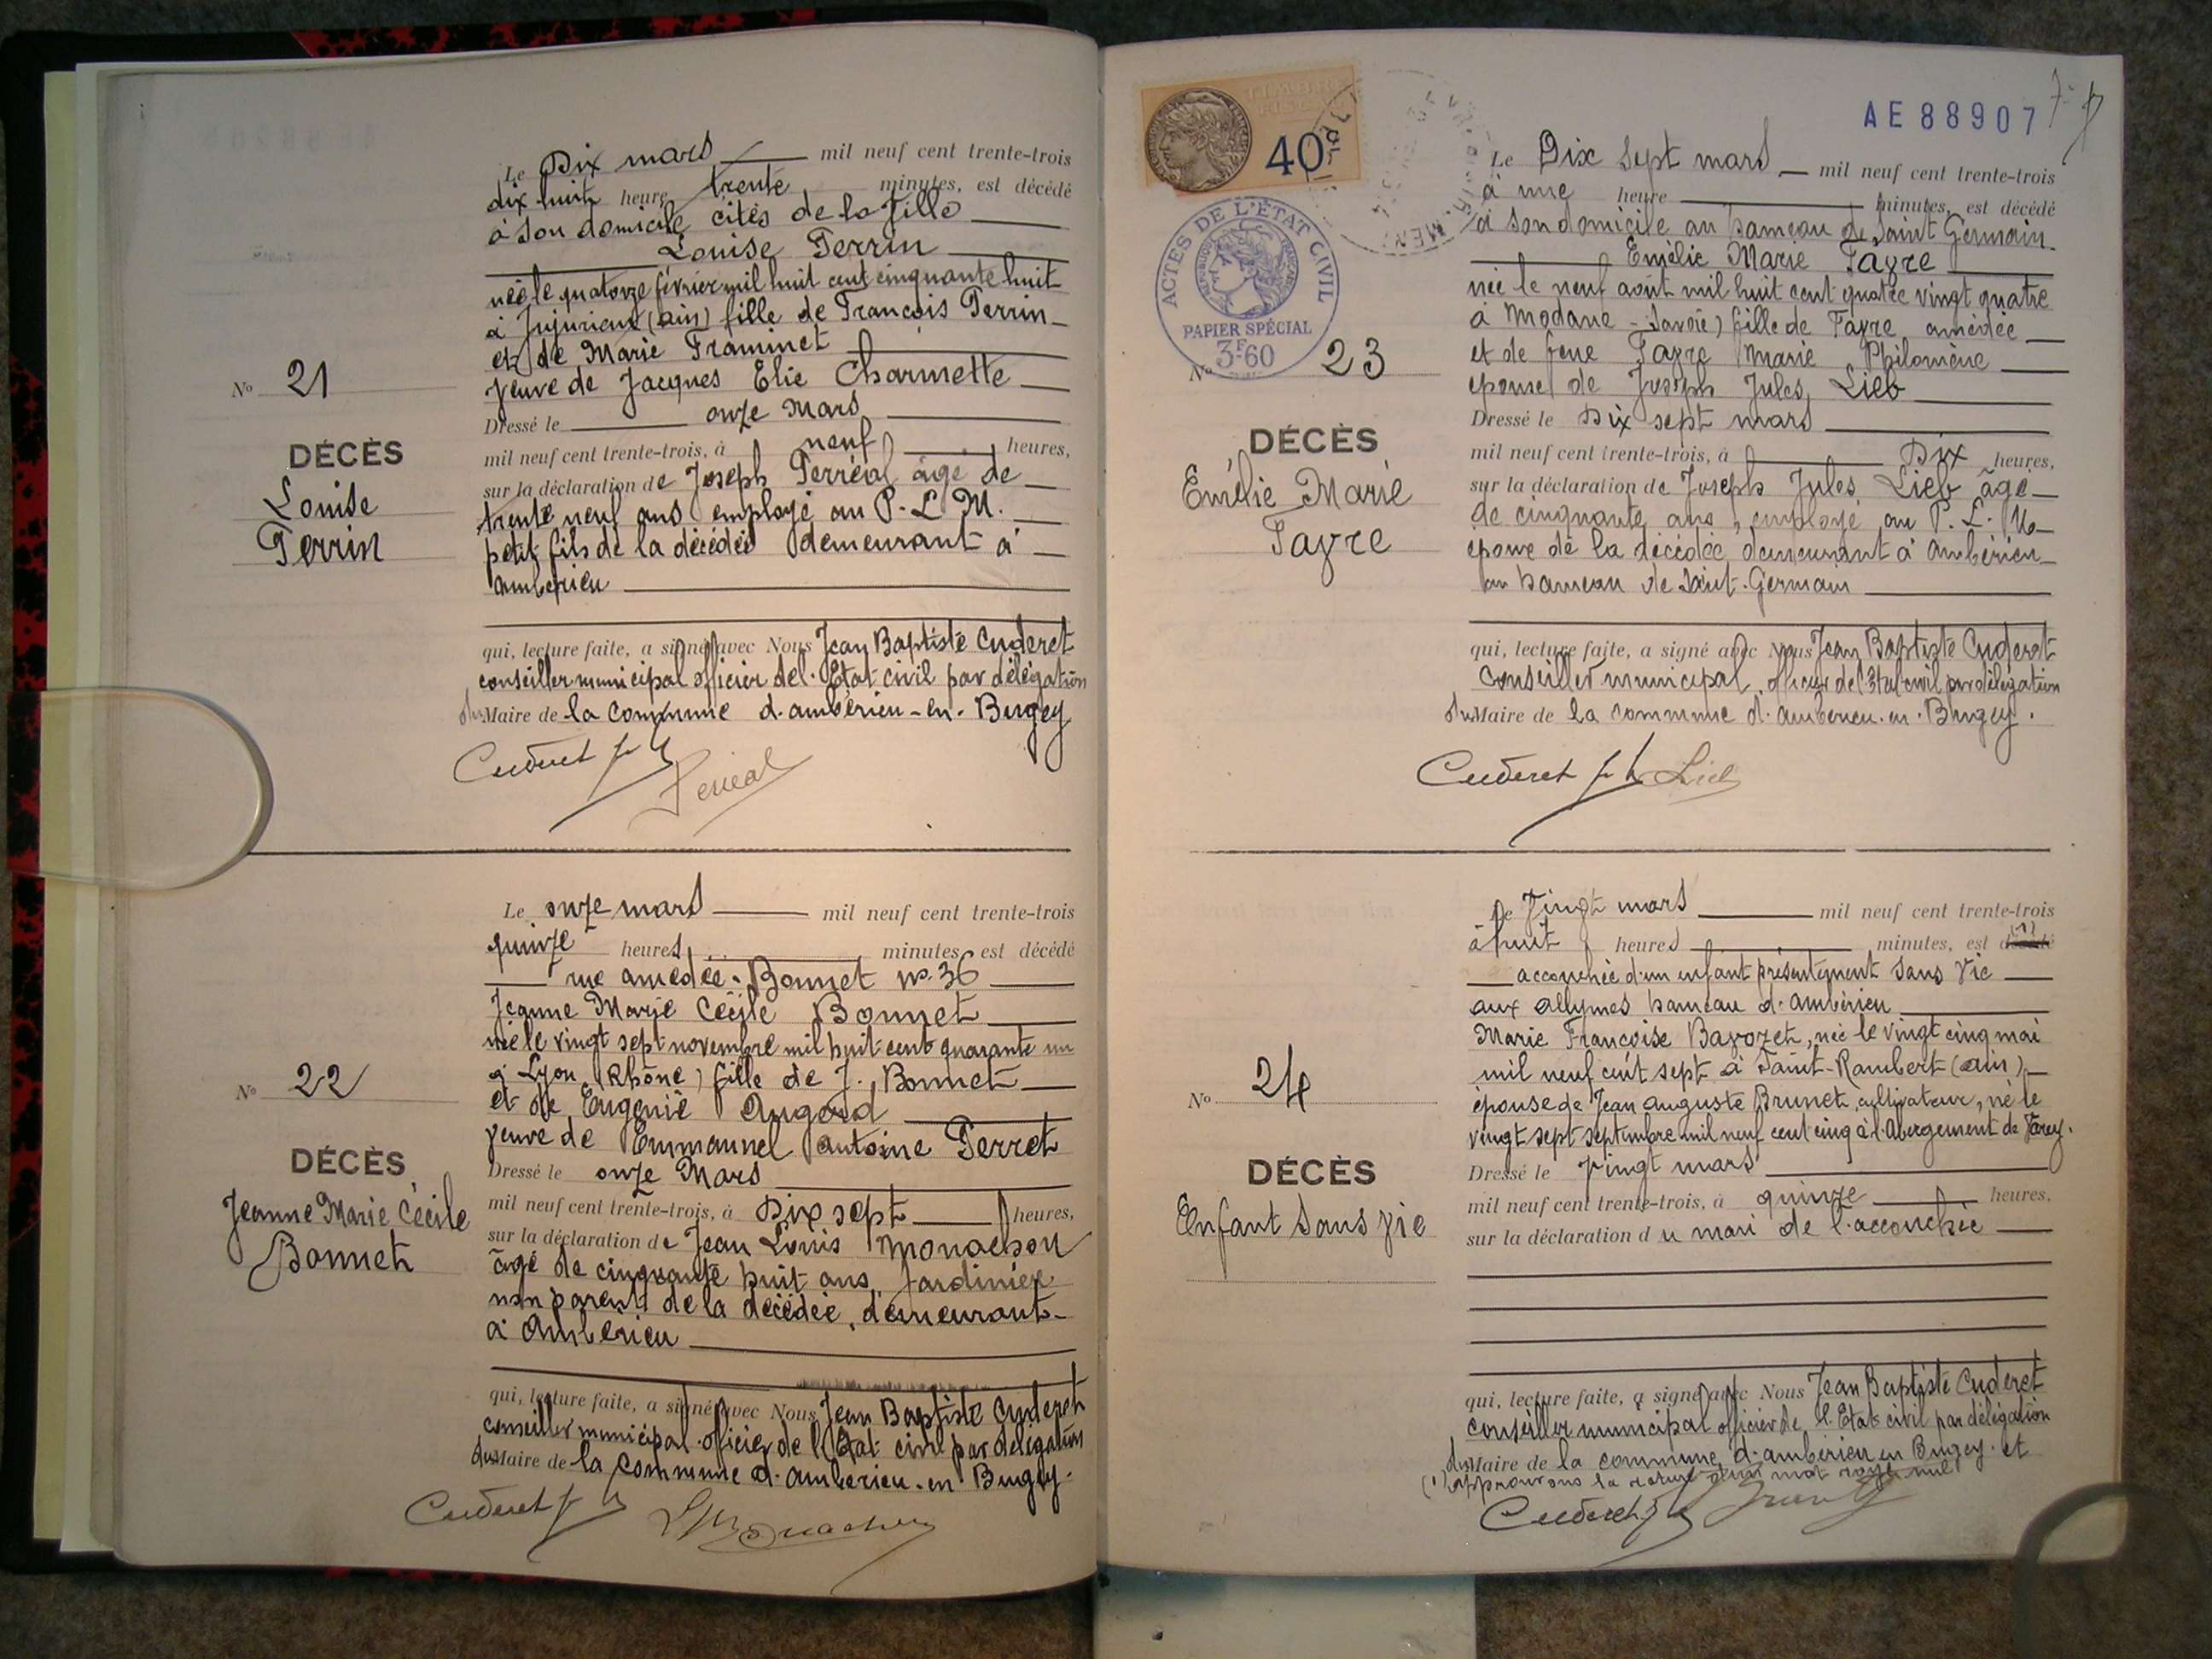 Le Dix mars mil neuf cent trente-trois
dix huit heures trente minutes, est décédé
à son domicile cités de la
Louise Perrin
née le quatorze février mil huit cent cinquante huit
à Jujurieux (ain) fille de François Perrin
et de Marie Framinet
veuve de Jacques Elie Charmette
Dressé le onze mars
mil neuf cent trente-trois, à neuf heures,
sur la déclaration de Joseph Perréal âgé de
trente neuf ans employé au P.L.M.
petit fils de la décédée demeurant à
ambérieu
qui, lecture faite, a signé avec Nous Jean Baptiste Cuderet
conseiller municipal officier de l'Etat civil par délégation
du Maire de la commune d'ambérieu-en-Bugey
Cuderet
Perréal
No 21
DÉCÈS
Louise
Perrin
Le onze mars mil neuf cent trente-trois
quinze heures minutes, est décédé
rue amédée Bonnet no 36
Jeanne Marie Cécile Bonnet
née le vingt sept novembre mil huit cent quarante un
à Lyon (Rhône) fille de J. Bonnet
et de Eugénie
veuve de Emmanuel antoine Perret
Dressé le onze Mars
mil neuf cent trente-trois, à Dix sept heures,
sur la déclaration de Jean Louis Monachon
âgé de cinquante huit ans, Jardinier
non parent de la décédée, demeurant
à Ambérieu
qui, lecture faite, a signé avec Nous Jean Baptiste Cuderet
conseiller municipal officier de l'Etat civil par délégation
du Maire de la commune d'ambérieu-en-Bugey.
Cuderet
L Monachon
No 22
DÉCÈS
Jeanne Marie Cécile
Bonnet
AE 88907
TIMBRE
FISCAL
40c
ACTES DE L'ÉTAT CIVIL
PAPIER SPÉCIAL
3F60
Le Dix sept mars mil neuf cent trente-trois
à une heure minutes, est décédé
à son domicile au hameau de Saint Germain
Emélie Marie Favre
née le neuf août mil huit cent quatre vingt quatre
à Modane - Savoie) fille de Favre amédée
et de feue Favre Marie Philomène
épouse de Joseph Jules Lieb
Dressé le Dix sept mars
mil neuf cent trente-trois, à Dix heures,
sur la déclaration de Joseph Jules Lieb âgé
de cinquante ans, employé au P.L.M
époux de la décédée demeurant à ambérieu
au hameau de Saint-Germain
qui, lecture faite, a signé avec Nous Jean Baptiste Cuderet
Conseiller municipal, officier de l'Etat civil par délégation
du Maire de la commune d'ambérieu-en-Bugey.
Cuderet
Lieb
No 23
DÉCÈS
Emélie Marie
Favre
Le Vingt mars mil neuf cent trente-trois
à huit heures minutes, est décédé (1)
accouchée d'un enfant présentement sans vie
aux allymes hameau d'ambérieu
Marie Françoise Bavozet, née le vingt cinq mai
mil neuf cent sept à Saint-Rambert (ain)
épouse de Jean auguste Brunet, cultivateur, né le
vingt sept septembre mil neuf cent cinq à l'abergement de Varey.
Dressé le Vingt mars
mil neuf cent trente-trois, à quinze heures,
sur la déclaration du mari de l'accouchée
qui, lecture faite, a signé avec Nous Jean Baptiste Cuderet
conseiller municipal officier de l'Etat civil par délégation
du Maire de la commune d'ambérieu en Bugey. et
(1) approuvons la rature d'un mot rayé nul
Cuderet
Brunet
No 24
DÉCÈS
Enfant sans vie